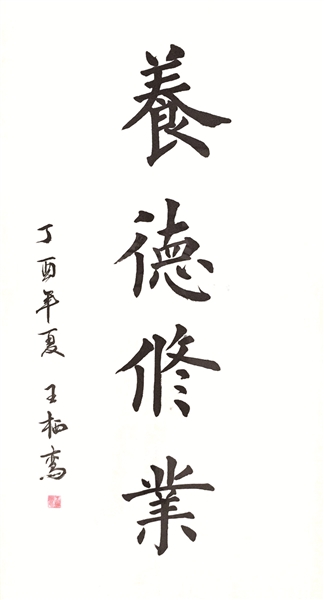 養德修業
丁酉年夏 王栖鸾